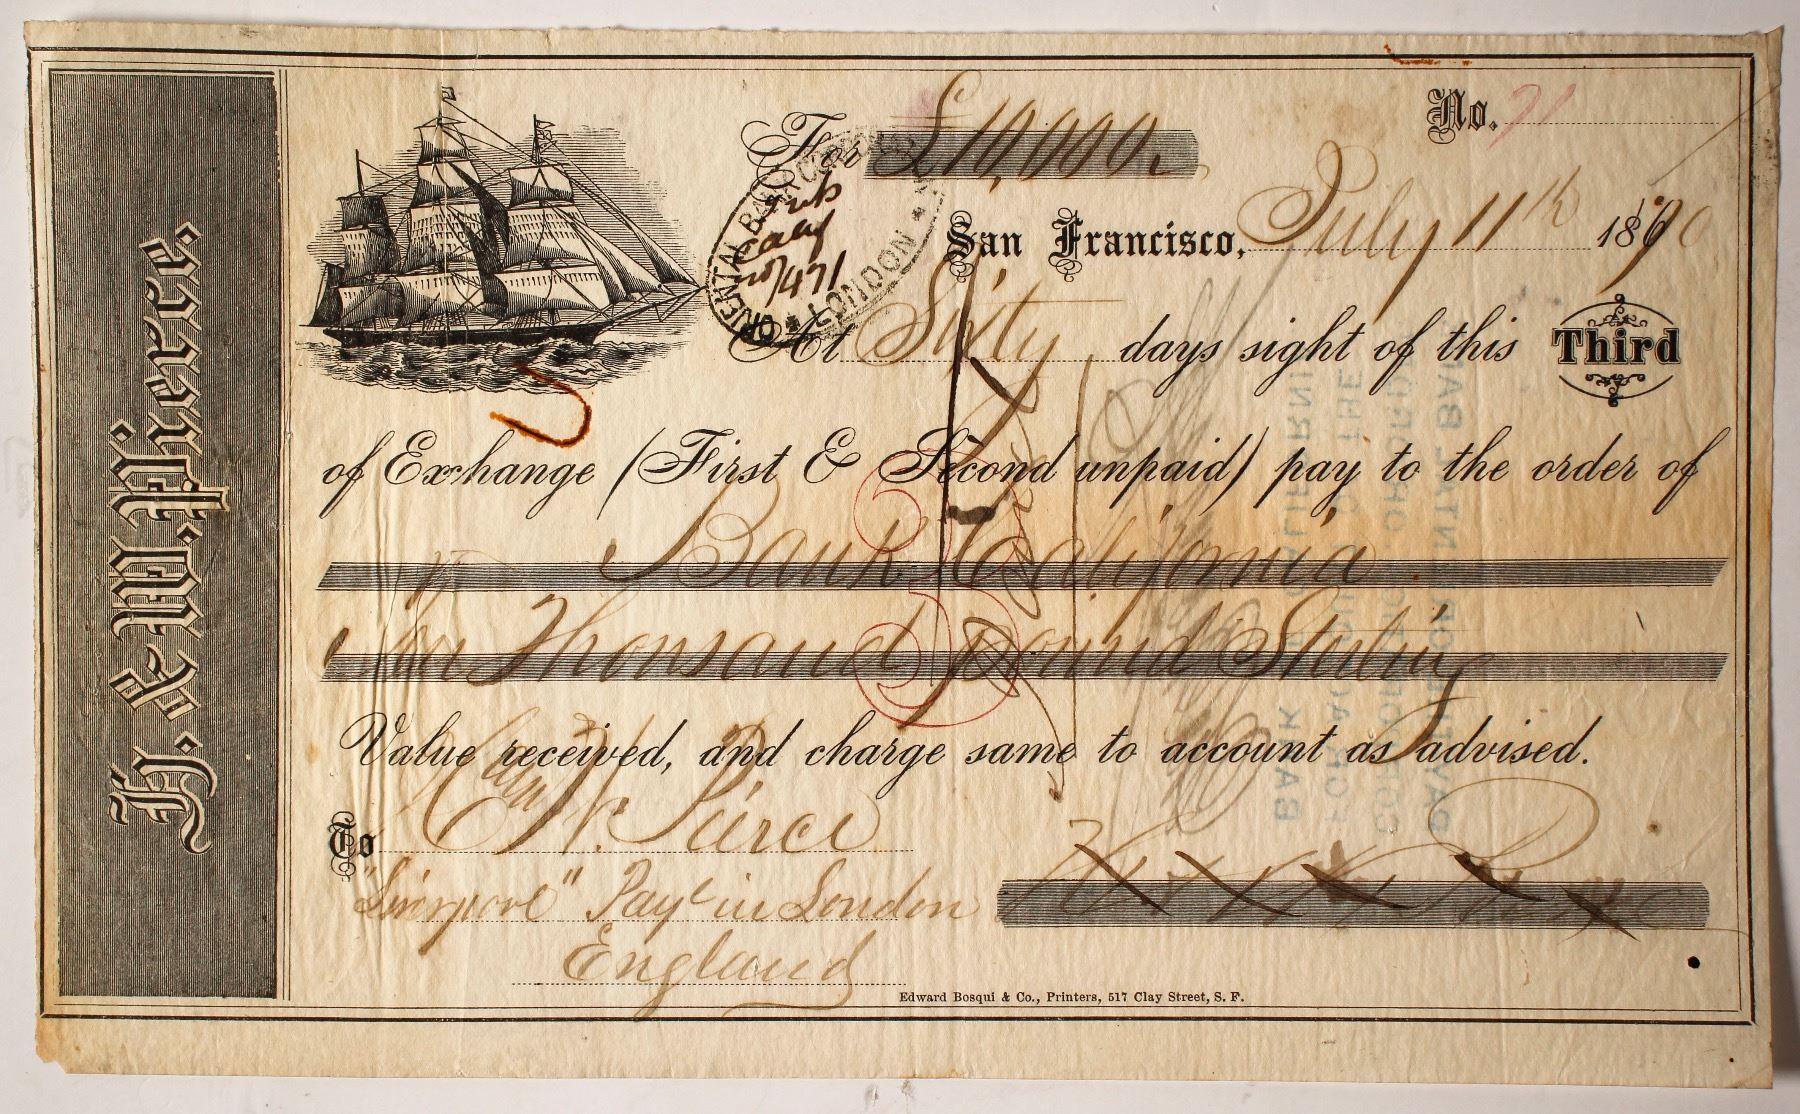 H. & W. Pierce.
No. 71
For £10,000.
ORIENTAL BANK LONDON
San Francisco, July 11th 1870
At Sixty days sight of this Third
of Exchange (First & Second unpaid) pay to the order of
Bank California
Ten Thousand pound Sterling
Value received, and charge same to account as advised.
To W. Pierce
"Liverpool" Paye in London
England
Edward Bosqui & Co., Printers, 517 Clay Street, S. F.